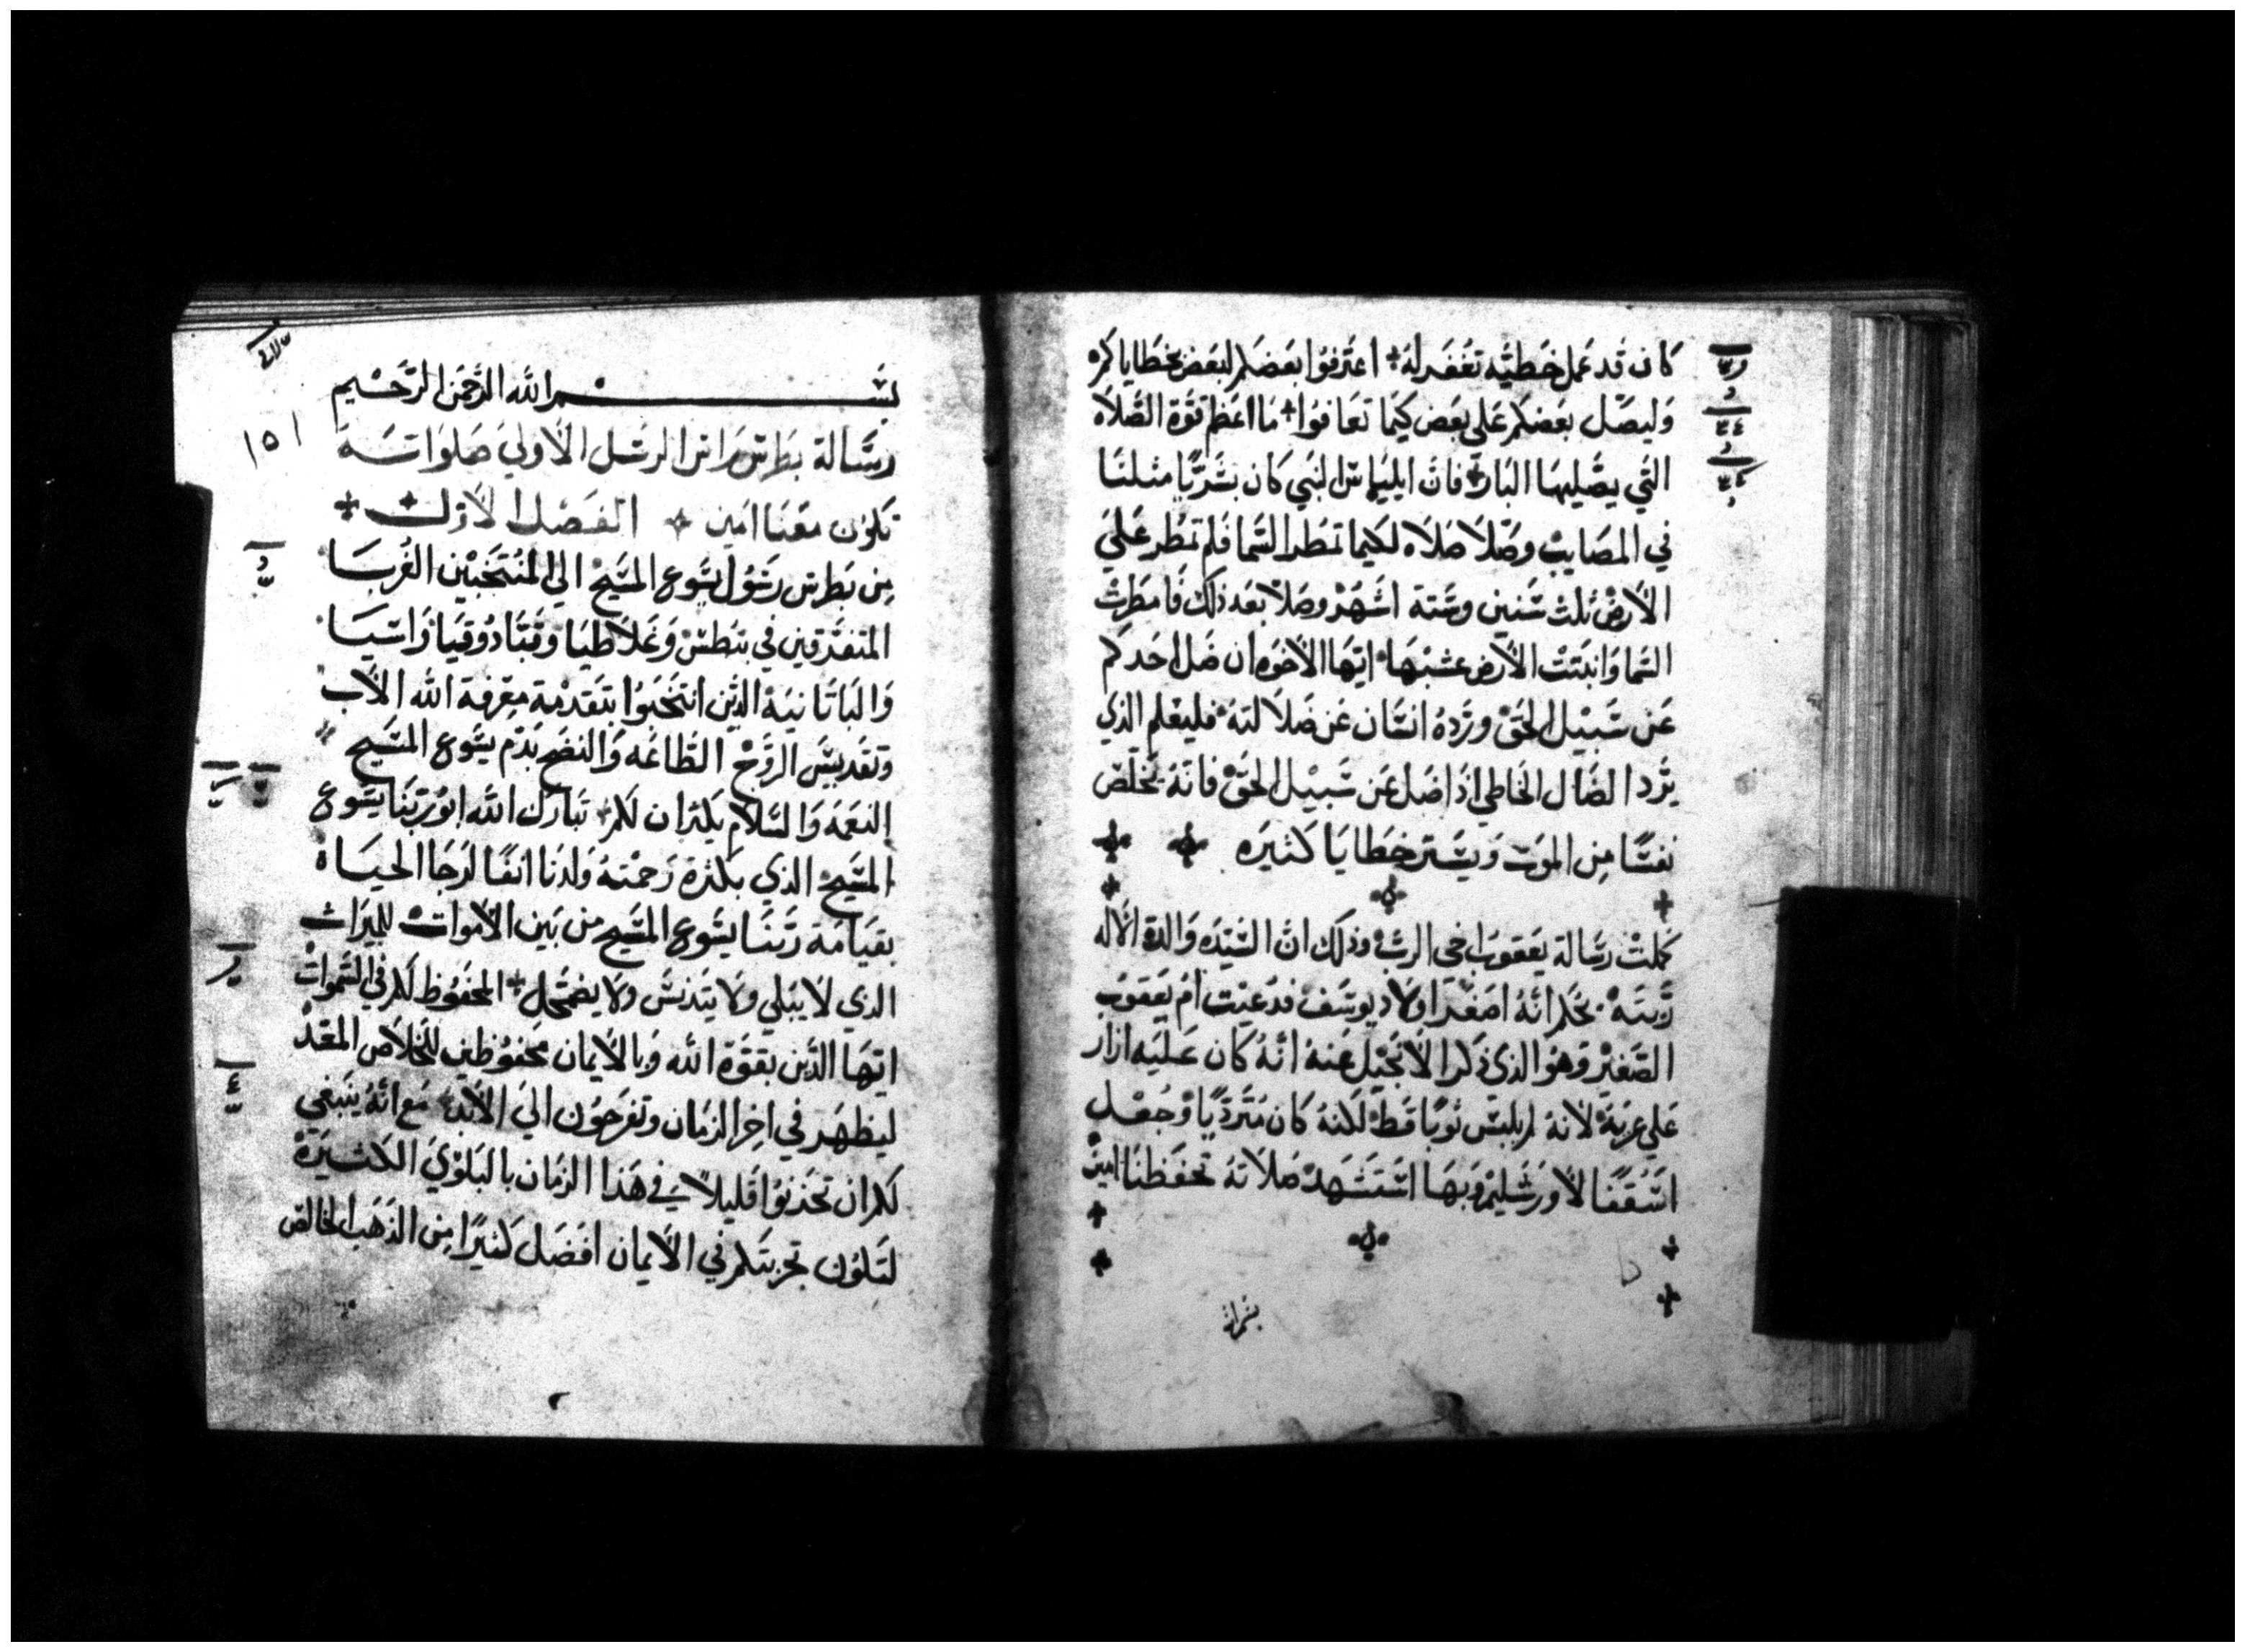 كان قد عمل خطيّه تغفر له + اعترفوا بعضكم لبعض بخطاياكم
وليصل بعضكم علي بعض كيما تعافوا + ما اعظم قوة الصلاه
التي يصليها البار + فان ايلياس النبي كان بشريا مثلنا
في المصايب وصلا صلاه لكيما تمطر السما فلم تمطر علي
الارض ثلث سنين وستة اشهر وصلا بعد ذلك فامطرت
السما وانبتت الارض عشبها ايها الاخوه ان ضل احدكم
عن سبيل الحق ورده انسان عن ضلالته فليعلم الذي
يرد الضال الخاطي اذا ضل عن سبيل الحق فانه يخلص
نفسًا من الموت ويستر خطايا كثيره
كملت رسالة يعقوب اخي الرب وذلك ان السيده والدة الاله
ربته بحكم انه اصغر اولاد يوسف فدعيت ام يعقوب
الصغير وهو الذي ذكر الانجيل عنه انه كان عليه ازار
علي عريه لانه لم يلبس ثوبا قط لكنه كان متردّيا وجعل
اسقفا لاورشليم وبها استشهد صلاته تحفظنا امين
بسم الله الرحمن الرحيم
رسالة بطرس راس الرسل الاولي صلواته
تكون معنا امين + الفصل الاول +
من بطرس رسول يسوع المسيح الي المنتخبين الغربا
المتفرقين في بنطس وغلاطيا وقبادوقيا واسيا
والباتانيه الذين انتخبوا بتقدمة معرفة الله الاب
وتقديس الروح الطاعه والنضح بدم يسوع المسيح
النعمه والسلام يكثران لكم + تبارك الله ابو ربنا يسوع
المسيح الذي بكثرة رحمته ولدنا انفا لرجا الحياه
بقيامة ربنا يسوع المسيح من بين الاموات للميراث
الذي لا يبلي ولا يتدنس ولا يضمحل + المحفوظ لكم في السموات
ايها الذين بقوة الله وبالايمان محفوظين للخلاص المعد
ليظهر في اخر الزمان وتفرحون الي الابد مع انه ينبغي
لكم ان تحزنوا قليلا في هذا الزمان بالبلوي الكثيرة
لتكون تجربتكم في الايمان افضل كثيرا من الذهب الخالص
١٥١